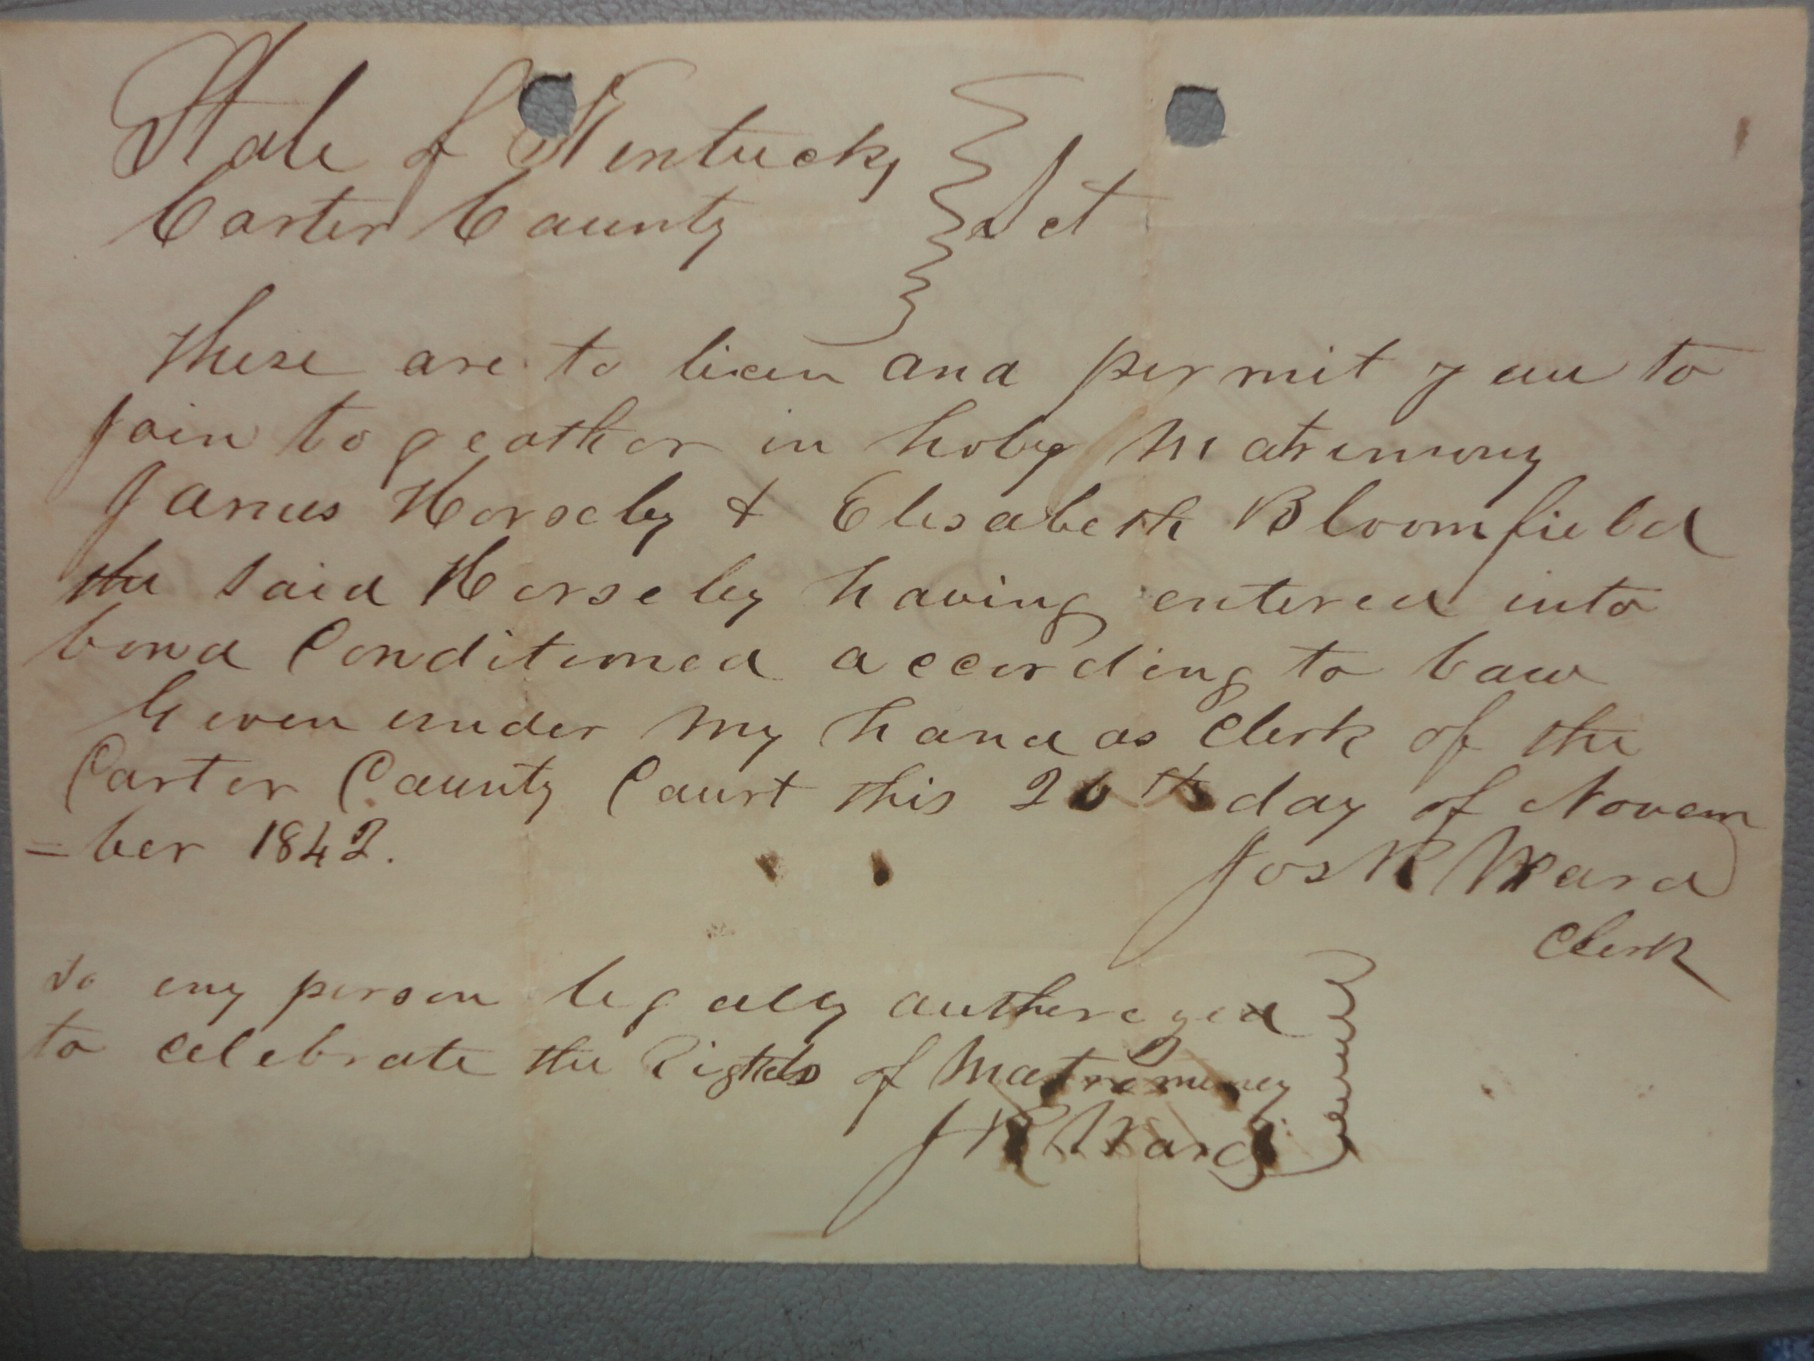 State of Kentucky
Carter County Sct
These are to licen and permit you to
join togeather in holy Matrimony
James Horseley & Elisabeth Bloomfield
the said Horseley having entered into
bond Conditioned according to law
Given under my hand as Clerk of the
Carter County Court this 26th day of Novem
=ber 1842.
Jos R Ward
Clerk
To eny person legally autherezed
to celebrate the Rights of Matrimoney
J R Ward